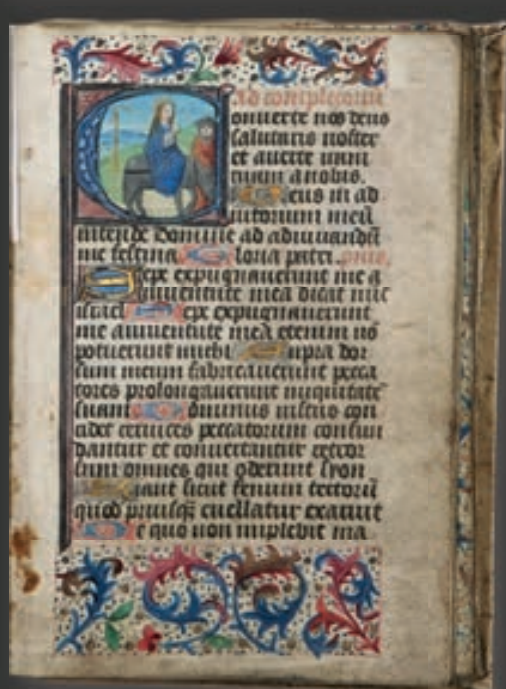 Ad completoriu
onuerte nos deus
salutaris noster
et auerte iram
tuam a nobis.
eus in ad
iutorium meū
intende Domine ad adiuuandū
me festina loria patri.
epe expugnauerunt me a
iuuentute mea dicat nūc
israel epe expugnauerunt
me aiuuentute mea etenim nō
potuerunt michi upra dor
sum meum fabricauerunt pecca
tores prolongauerunt iniquitatē
suam ominus iustus con
cidet ceruices peccatorum confun
dantur et conuertantur retror
sum omnes qui oderunt syon
iant sicut fenum tectorū
quod priusq̄ euellatur exaruit
e quo non impleuit ma